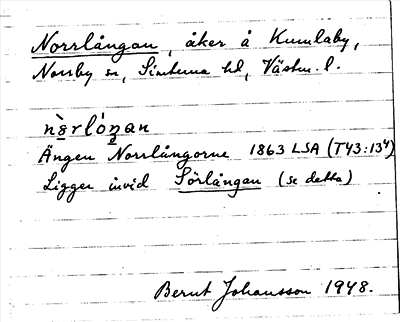 Norrlångan, åker å Kumlaby,
Norrby sn, Simtuna hd, Västm. l.
nàrlóŋan
Ängen Norrlångorne 1863 LSA (T43:13⁴)
Ligger invid Sörlångan (se detta)
Bernt Johansson 1948.